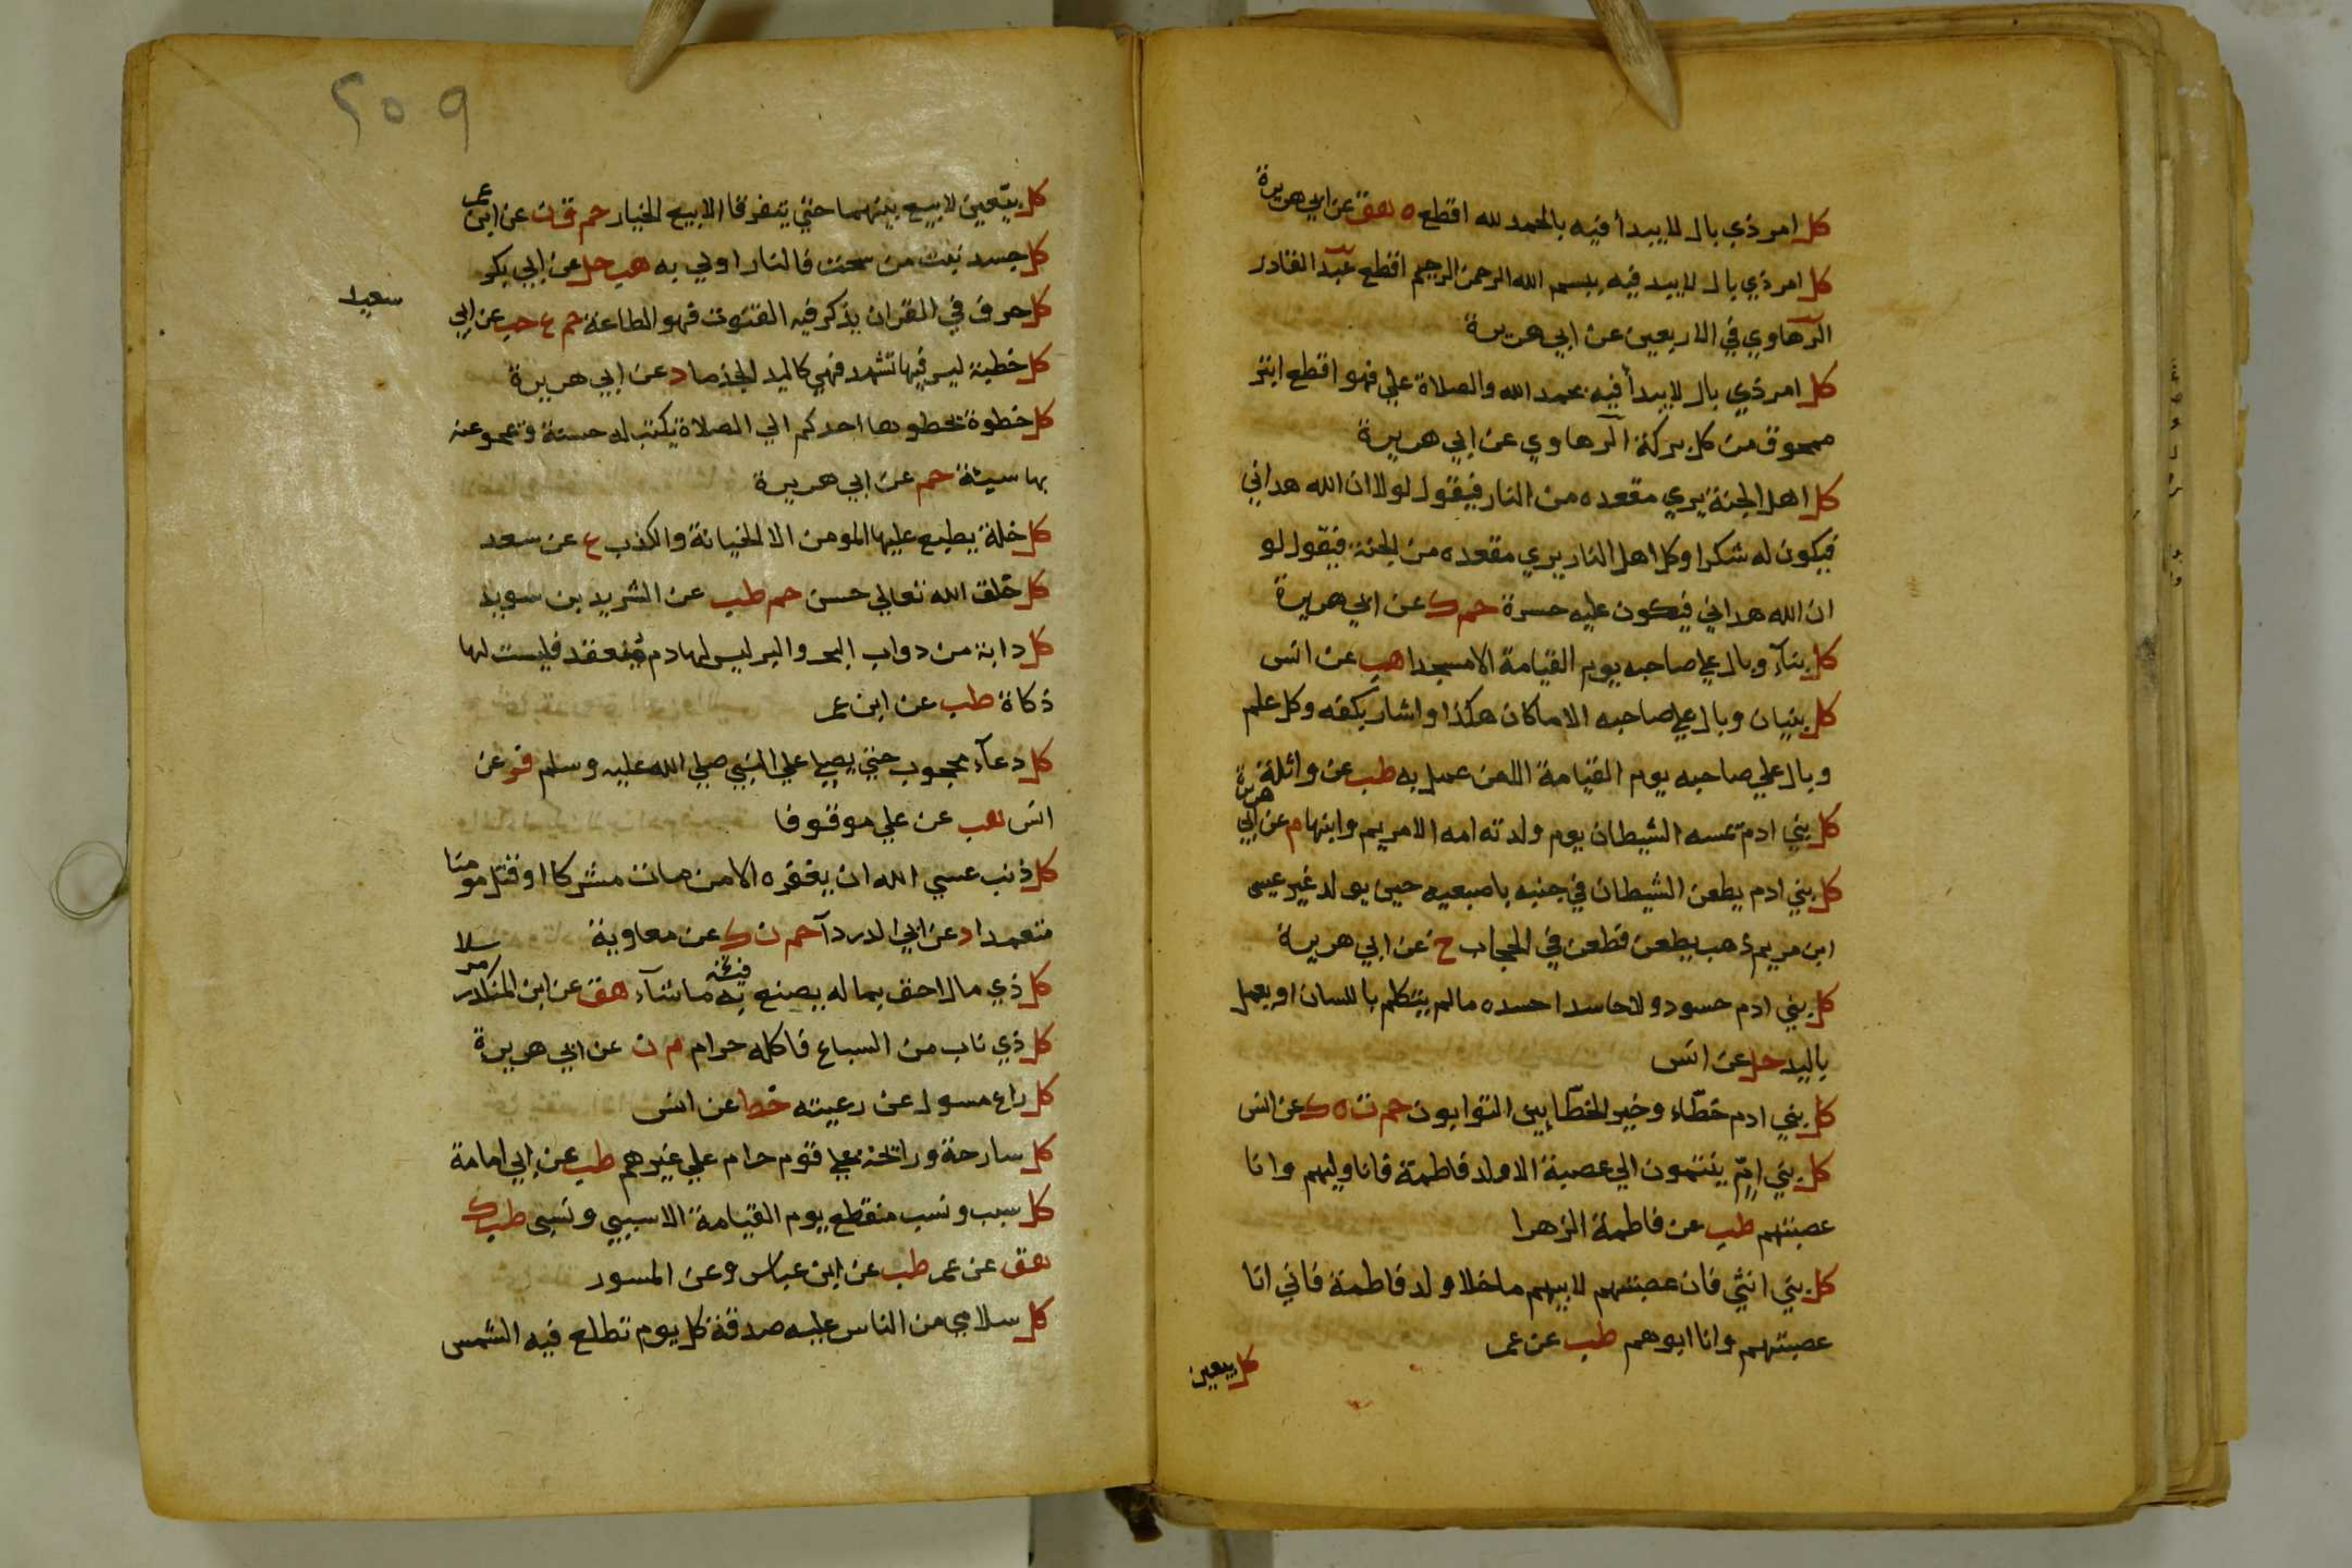 كل امر ذي بال لا يبدأ فيه بالحمد لله اقطع ه هق عن ابي هريرة
كل امر ذي بال لا يبد فيه ببسم الله الرحمن الرحيم اقطع عبد القادر
الرهاوي في الاربعين عن ابي هريرة
كل امر ذي بال لا يبدأ فيه بحمد الله والصلاة علي فهو اقطع ابتر
ممحوق من كل بركة الرهاوي عن ابي هريرة
كل اهل الجنة يري مقعده من النار فيقول لولا ان الله هداني
فيكون له شكرا وكل اهل النار يري مقعده من الجنة فيقول لو
ان الله هداني فيكون عليه حسرة حم ك عن ابي هريرة
كل بنآء وبال علي صاحبه يوم القيامة الا مسجدا هب عن انس
كل بنيان وبال علي صاحبه الا ما كان هكذا واشار بكفه وكل علم
وبال علي صاحبه يوم القيامة الا من عمل به طب عن واثلة
كل بني ادم تمسه الشيطان يوم ولدته امه الا مريم وابنها م عن ابي هريرة
كل بني ادم يطعن الشيطان في جنبه باصبعيه حين يولد غير عيسى
ابن مريم ذهب يطعن فطعن في الحجاب خ عن ابي هريرة
كل بني ادم حسود ولا حاسدا حسده ما لم يتكلم باللسان او يعمل
باليد حل عن انس
كل بني ادم خطّاء وخير الخطّايين التوابون حم ت ه ك عن انس
كل بني امّ ينتمون الي عصبة الا ولد فاطمة فانا وليهم وانا
عصبتهم طب عن فاطمة الزهرا
كل بني انثي فان عصبتهم لابيهم ما خلا ولد فاطمة فاني انا
عصبتهم وانا ابوهم طب عن عمر
كل بيعين
٢٥٩
كل بيّعين لا بيع بينهما حتي يتفرقا الا بيع الخيار حم ق ن عن ابن عمر
كل جسد نبت من سحت فالنار اولي به هب حل عن ابي بكر
كل حرف في القران يذكر فيه القنوت فهو الطاعة حم ع حب عن ابي
سعيد
كل خطبة ليس فيها تشهد فهي كاليد الجذما د عن ابي هريرة
كل خطوة تخطوها احدكم الي الصلاة يكتب له حسنة و يمحو عنه
بها سيئة حم عن ابي هريرة
كل خلة يطبع عليها المومن الا الخيانة والكذب ع عن سعد
كل خلق الله تعالي حسن حم طب عن الشريد بن سويد
كل دابة من دواب البحر والبر ليس لها دم ينعقد فليست لها
ذكاة طب عن ابن عمر
كل دعآء محجوب حتي يصلي علي النبي صلي الله عليه وسلم فر عن
انس هب عن علي موقوفا
كل ذنب عسي الله ان يغفره الا من مات مشركا او قتل مومنا
متعمدا د عن ابي الدردآ حم ن ك عن معاوية
كل ذي مال احق بماله يصنع به ما شآء هق عن ابن المنكدر مرسلا
كل ذي ناب من السباع فاكله حرام م ن عن ابي هريرة
كل راع مسول عن رعيته خط عن انس
كل سارحة ورائحة علي قوم حرام علي غيرهم طب عن ابي امامة
كل سبب ونسب منقطع يوم القيامة الا سببي ونسبي طب ك
هق عن عمر طب عن ابن عباس وعن المسور
كل سلامي من الناس عليه صدقة كل يوم تطلع فيه الشمس